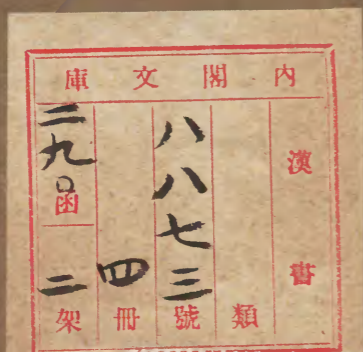 內閣文庫
漢書
類
八八七三號
四冊
二九〇函
二架